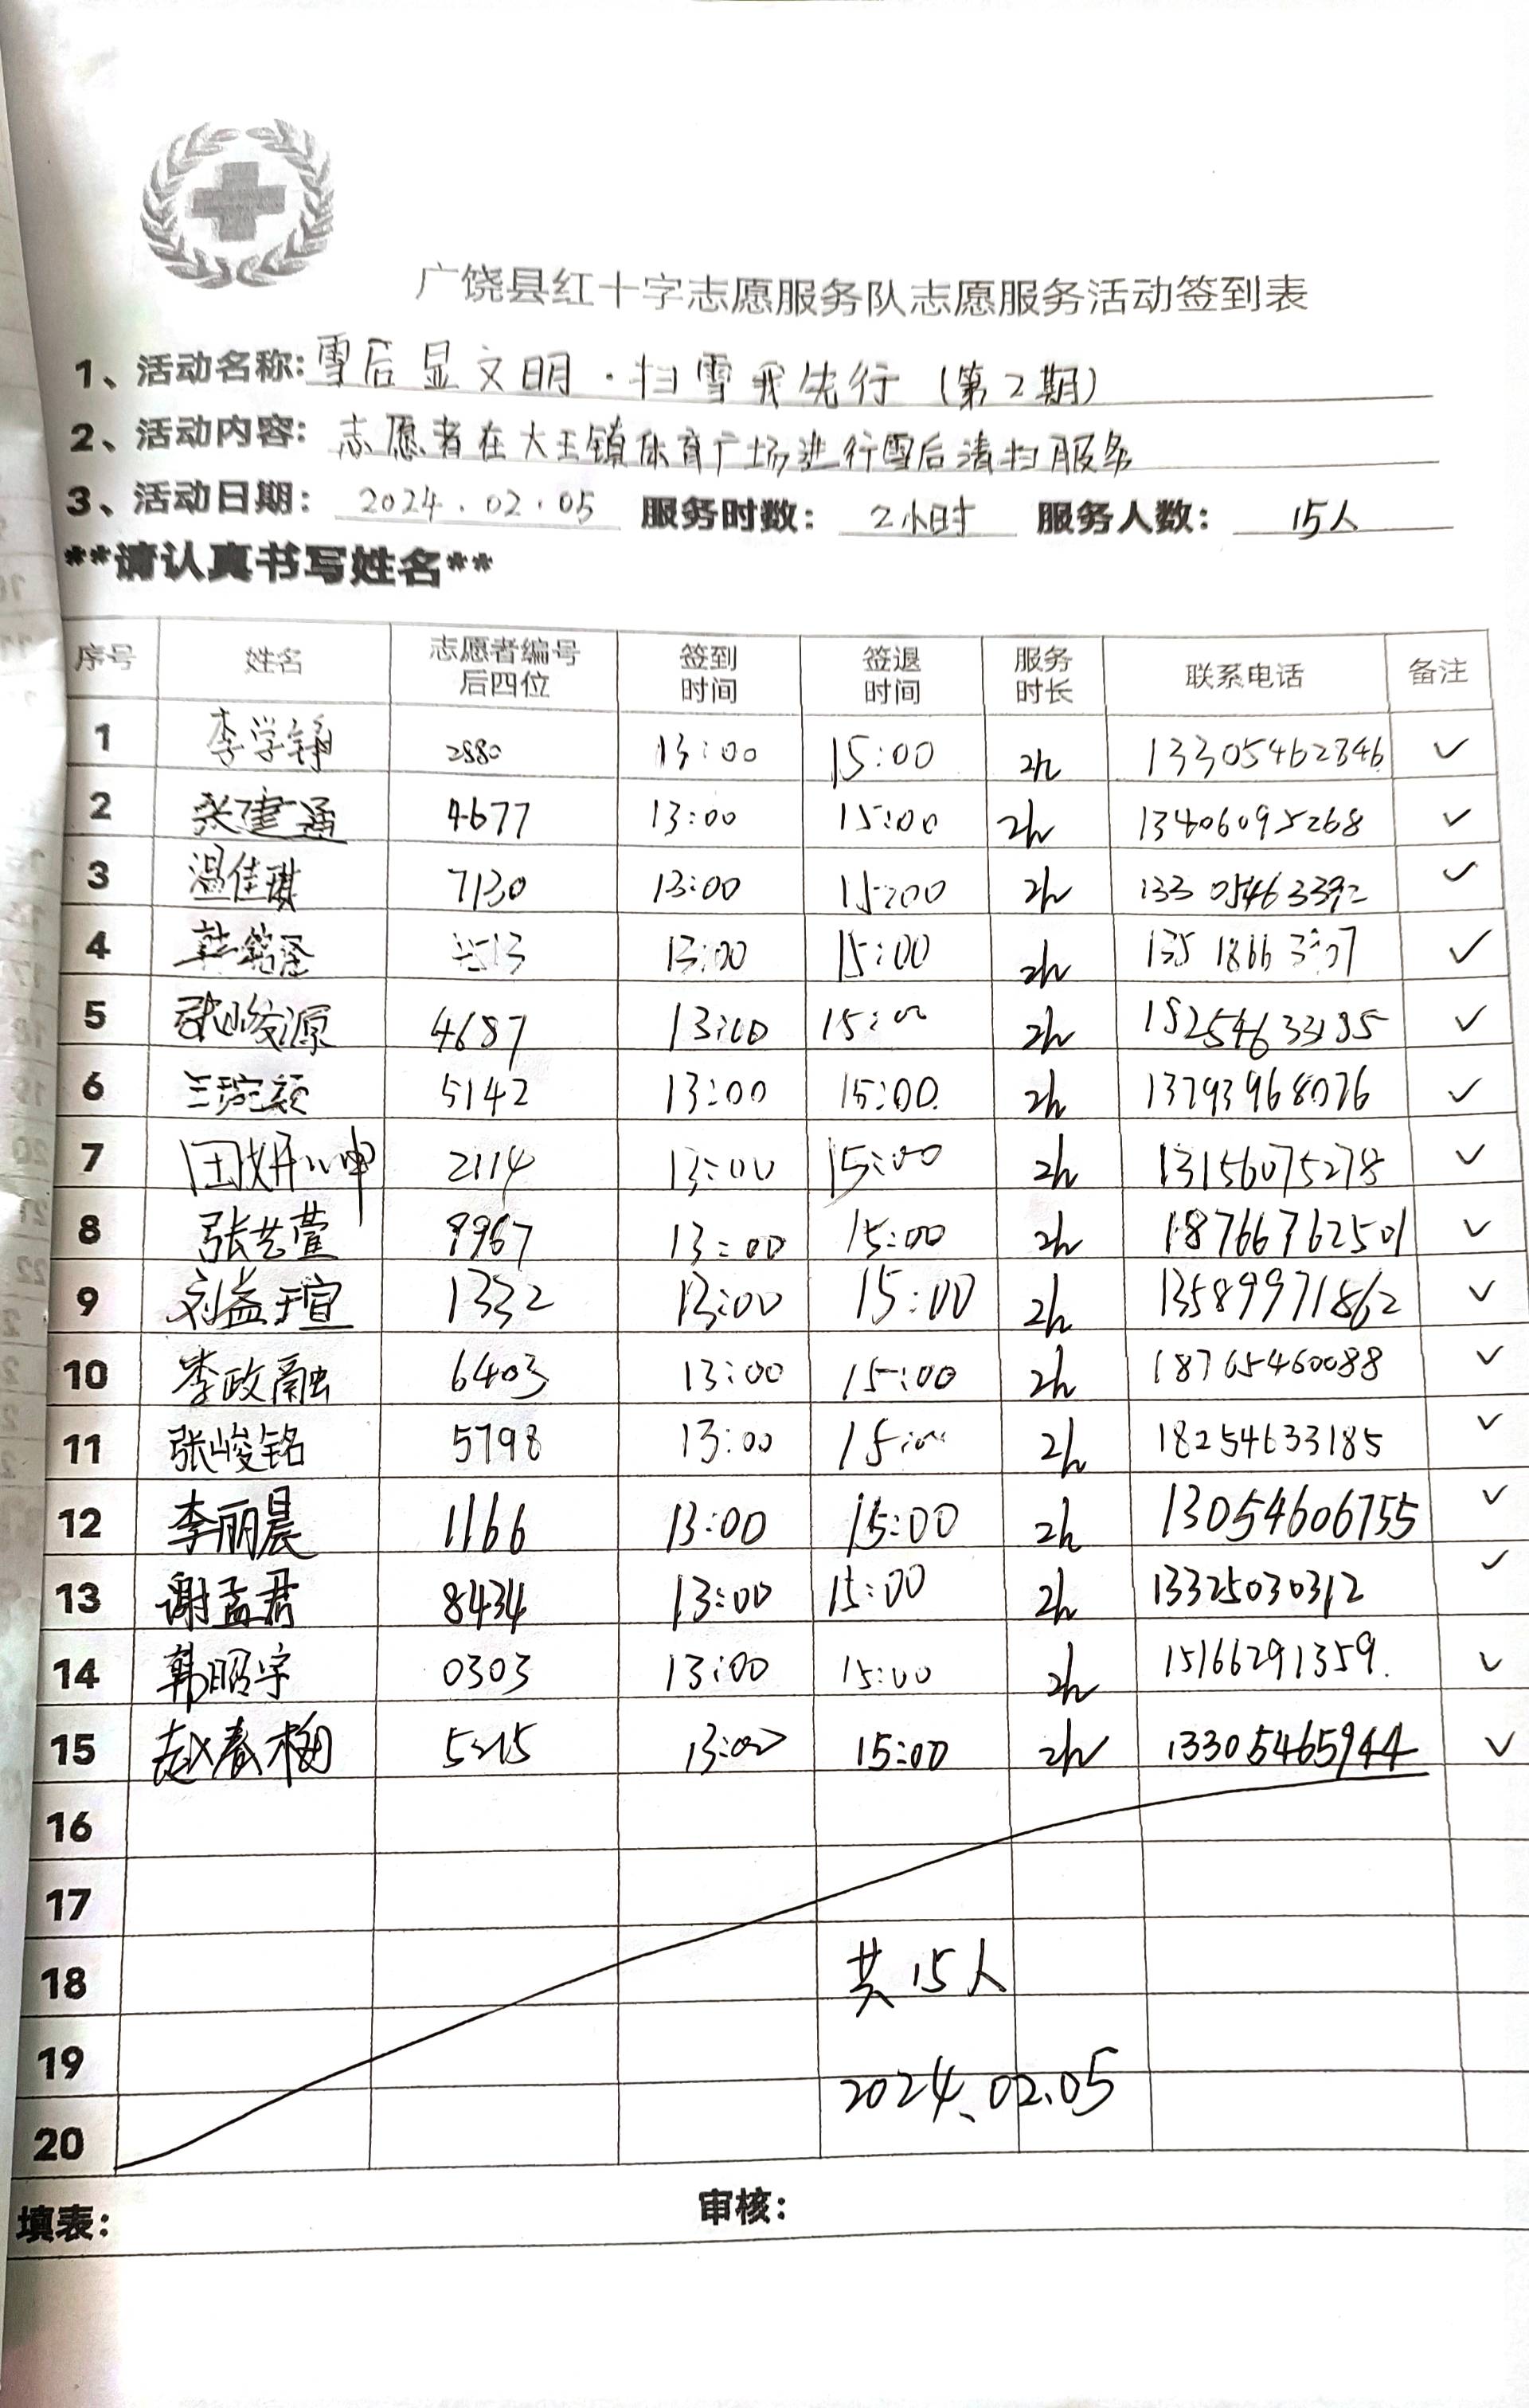 广饶县红十字志愿服务队志愿服务活动签到表
1、活动名称: 雪后显文明·扫雪我先行（第2期）
2、活动内容: 志愿者在大王镇体育广场进行雪后清扫服务
3、活动日期: 2024.02.05 服务时数: 2小时 服务人数: 15人
**请认真书写姓名**
序号 姓名 志愿者编号后四位 签到时间 签退时间 服务时长 联系电话 备注
1 李学铮 2880 13:00 15:00 2h 13305462846 ✓
2 张建通 4677 13:00 15:00 2h 13406095268 ✓
3 温佳琪 7130 13:00 15:00 2h 13305463392 ✓
4 韩 13:00 15:00 2h ✓
5 张峻源 4687 13:00 15:00 2h 18254633185 ✓
6 5142 13:00 15:00 2h 13793968076 ✓
7 田妍 2114 13:00 15:00 2h 13156075278 ✓
8 张艺萱 9967 13:00 15:00 2h 18766762501 ✓
9 刘益瑄 1332 13:00 15:00 2h 13589971862 ✓
10 李政融 6403 13:00 15:00 2h 18765460088 ✓
11 张峻铭 5798 13:00 15:00 2h 18254633185 ✓
12 李丽晨 1166 13:00 15:00 2h 13054606755 ✓
13 谢孟君 8434 13:00 15:00 2h 13325030312 ✓
14 韩昭宇 0303 13:00 15:00 2h 15166291359. ✓
15 赵春梅 5215 13:00 15:00 2h 13305465944 ✓
16
17
18 共15人
19
2024.02.05
20
填表: 审核: